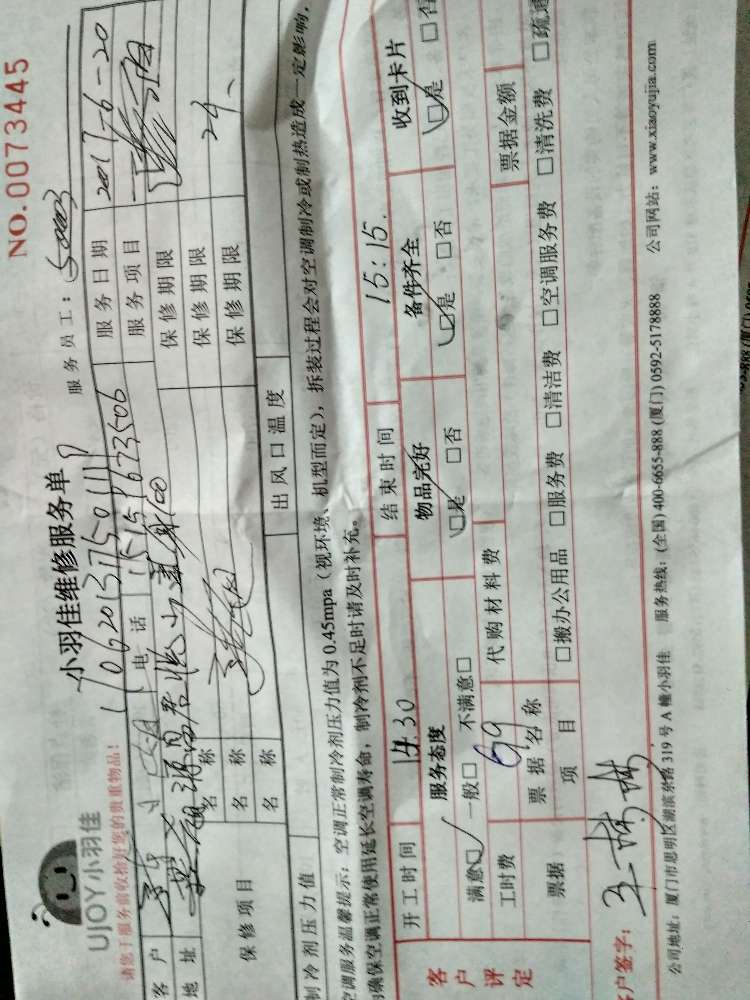 NO.0073445
小羽佳维修服务单
UJOY小羽佳
服务员工：
请您于服务前收捡好您的贵重物品！
客户 电话 服务日期 2017-6-20
地址 服务项目
保修项目 名称 保修期限
名称 保修期限
名称 保修期限
制冷剂压力值 出风口温度
空调服务温馨提示：空调正常制冷剂压力值为0.45mpa（视环境、机型而定），拆装过程会对空调制冷或制热造成一定影响，
确保空调正常使用延长空调寿命，制冷剂不足时请及时补充。
客户评定
开工时间 14:30 结束时间 15:15
服务态度 物品完好 备件齐全 收到卡片
满意□ 一般□ 不满意□ □是 □否 □是 □否 □是 □否
工时费 69 代购材料费 票据金额
票据 票据名称
项目 □搬办公用品 □服务费 □清洁费 □空调服务费 □清洗费 □疏通
户签字：
公司地址：厦门市思明区湖滨东路319号A幢小羽佳 服务热线：(全国)400-6655-888 (厦门)0592-5178888 公司网站：www.xiaoyujia.com